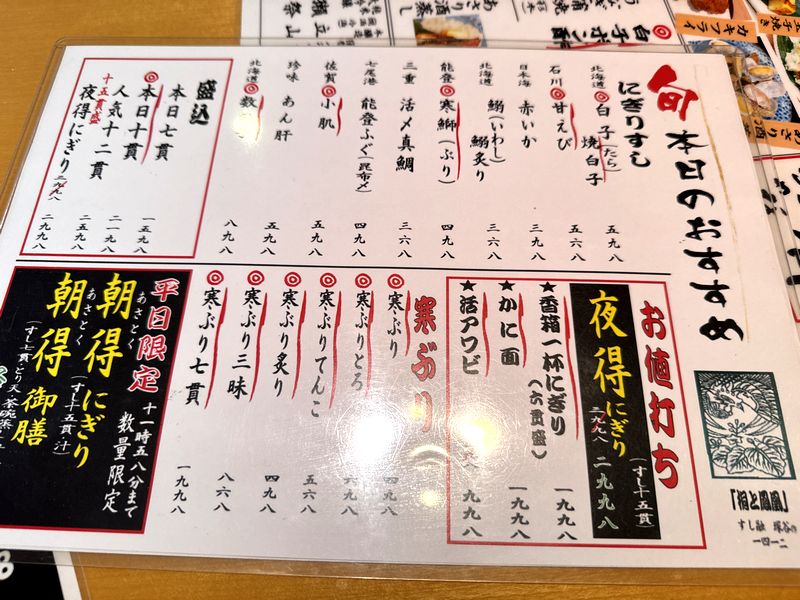 旬 本日のおすすめ
にぎりすし
北海道 ◎白子(たら) 焼白子 五九八
石川 ◎甘えび 五六八
日本海 赤いか 三九八
北海道 鰯(いわし) 鰯炙り 三六八
能登 ◎寒鰤(ぶり) 四九八
三重 活〆真鯛 三六八
七尾港 能登ふぐ(昆布〆) 四九八
佐賀 ◎小肌 五九八
珍味 あん肝 五九八
北海道 ◎数 八九八
盛込
本日七貫 一五九八
◎本日十貫 二一九八
人気十二貫 二五九八
十五貫盛 夜得にぎり 二九九八
お値打ち
夜得にぎり (すし十五貫) 二九九八
★香箱一杯にぎり(六貫盛) 一九九八
★かに面 一九九八
★活アワビ 九九八
寒ぶり
◎寒ぶり 四九八
◎寒ぶりとろ 六九八
◎寒ぶりてんこ 五六八
◎寒ぶり炙り 四九八
◎寒ぶり三昧 八六八
◎寒ぶり七貫 一九九八
平日限定 十一時五八分まで 数量限定
あさとく
朝得にぎり (すし十五貫・汁)
あさとく
朝得御膳
(すし七貫・とり天・茶碗蒸
「桐と鳳凰」
すし融 塚谷の
一四一二
白子ポン酢
カキフライ
酒蒸し